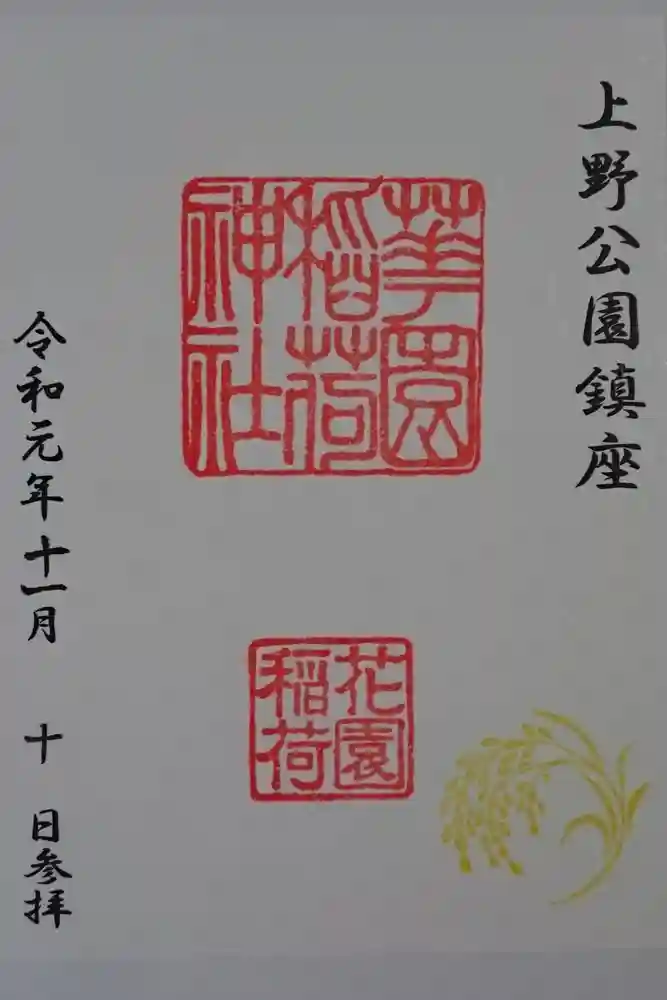 上野公園鎮座
華園
稲荷
神社
花園
稲荷
令和元年十一月 十 日参拝